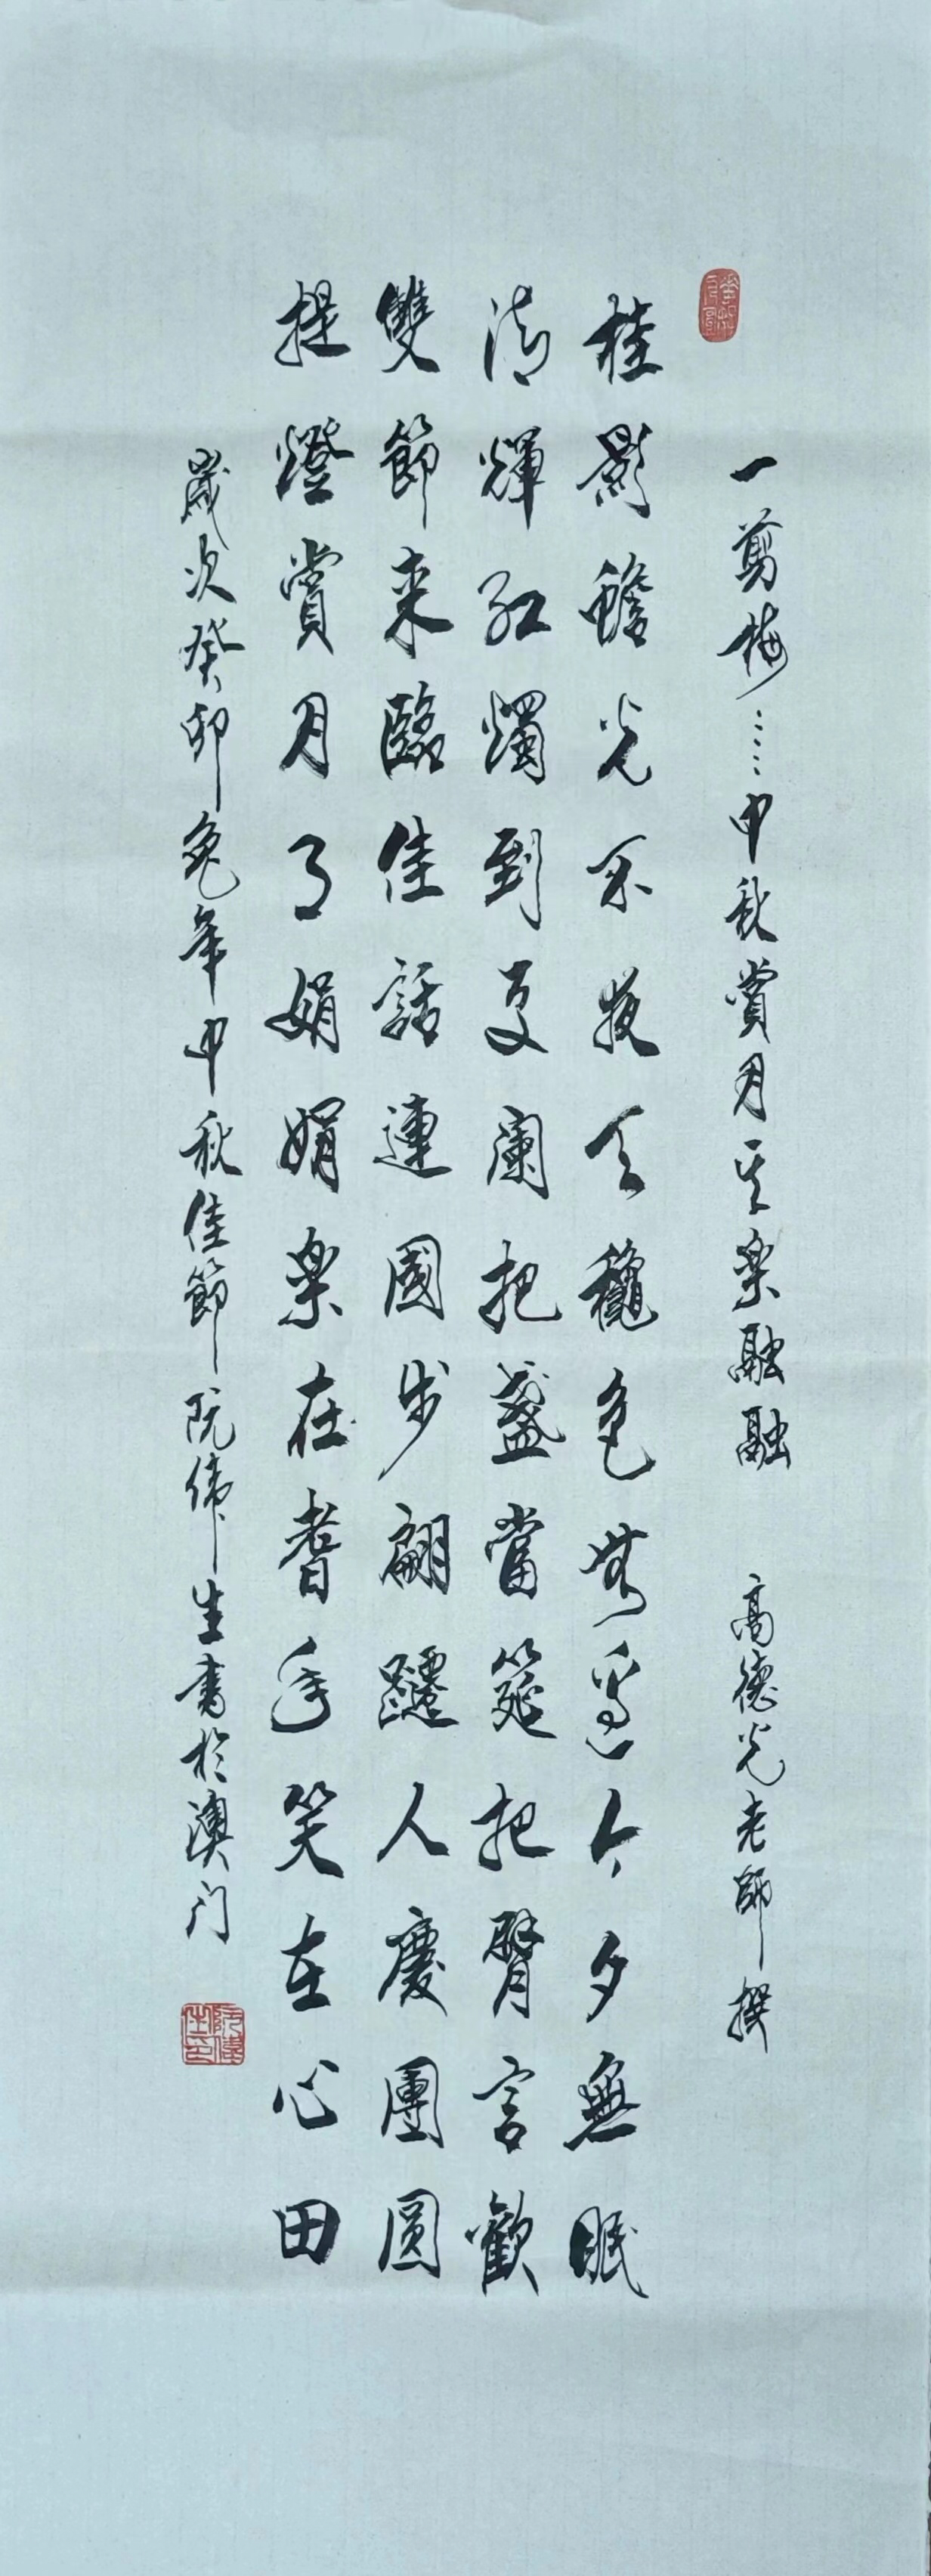 一剪梅……中秋賞月其楽融融 高德光老師撰
桂影蟾光不夜天穐色無邊今夕無眠
清輝紅燭到更瀾把盞當筵把臂言歡
雙節来臨佳話連國步翩躚人慶團圓
提燈賞月了娟娟楽在耆年笑在心田
歲次癸卯兔年中秋佳節阮偉生書於澳门
阮偉生印